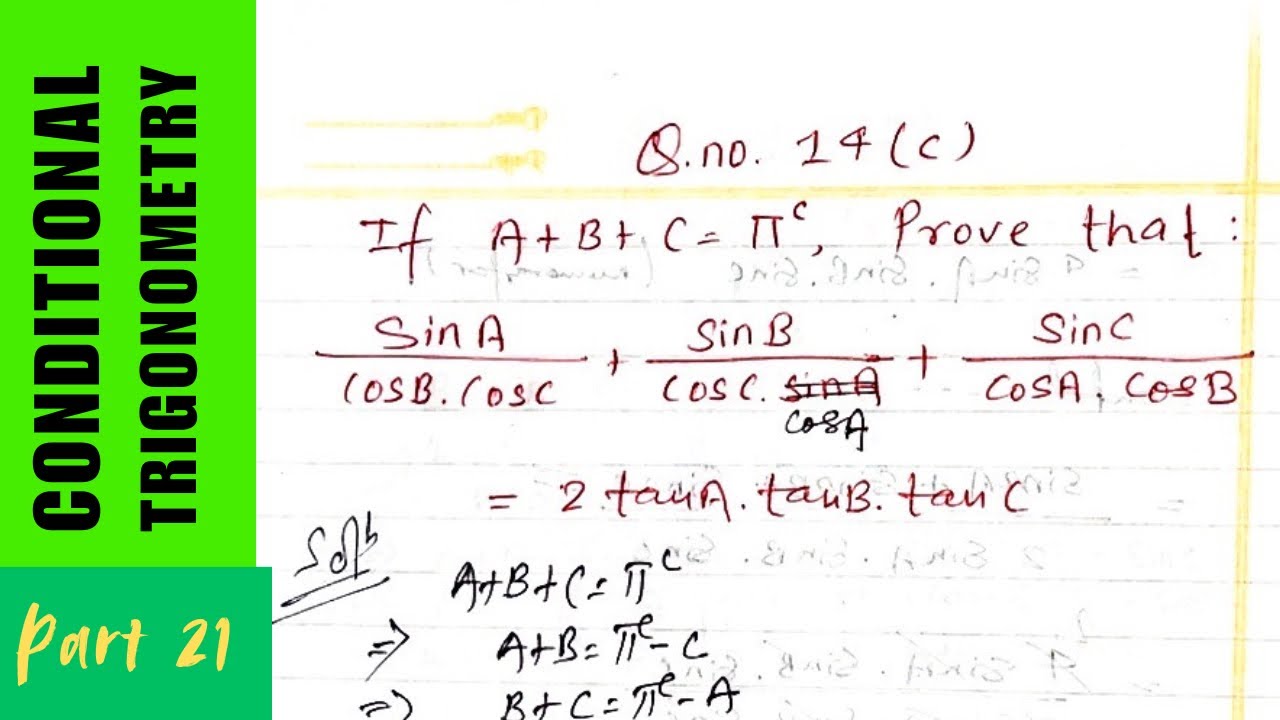 CONDITIONAL
TRIGONOMETRY
Part 21
Q.no. 14(c)
If A+B+C=π^c, Prove that:
SinA/(cosB.cosC) + SinB/(cosC.~~sinA~~ cosA) + SinC/(cosA.cosB)
= 2 tanA.tanB.tanC
Solⁿ
A+B+C=π^c
=> A+B=π^c-C
=> B+C=π^c-A